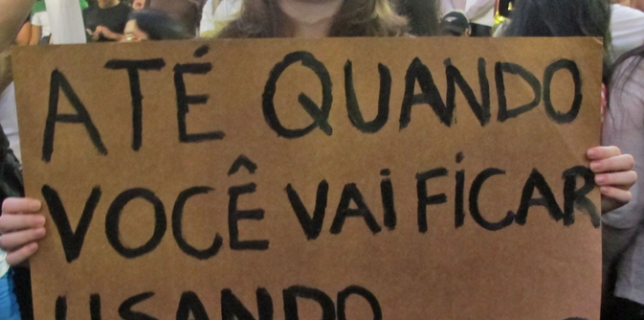 ATÉ QUANDO
VOCÊ VAi FiCAR
USANDO